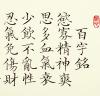 百字銘
慾寡精神爽
思多血氣衰
少飲不亂性
忍氣免傷財